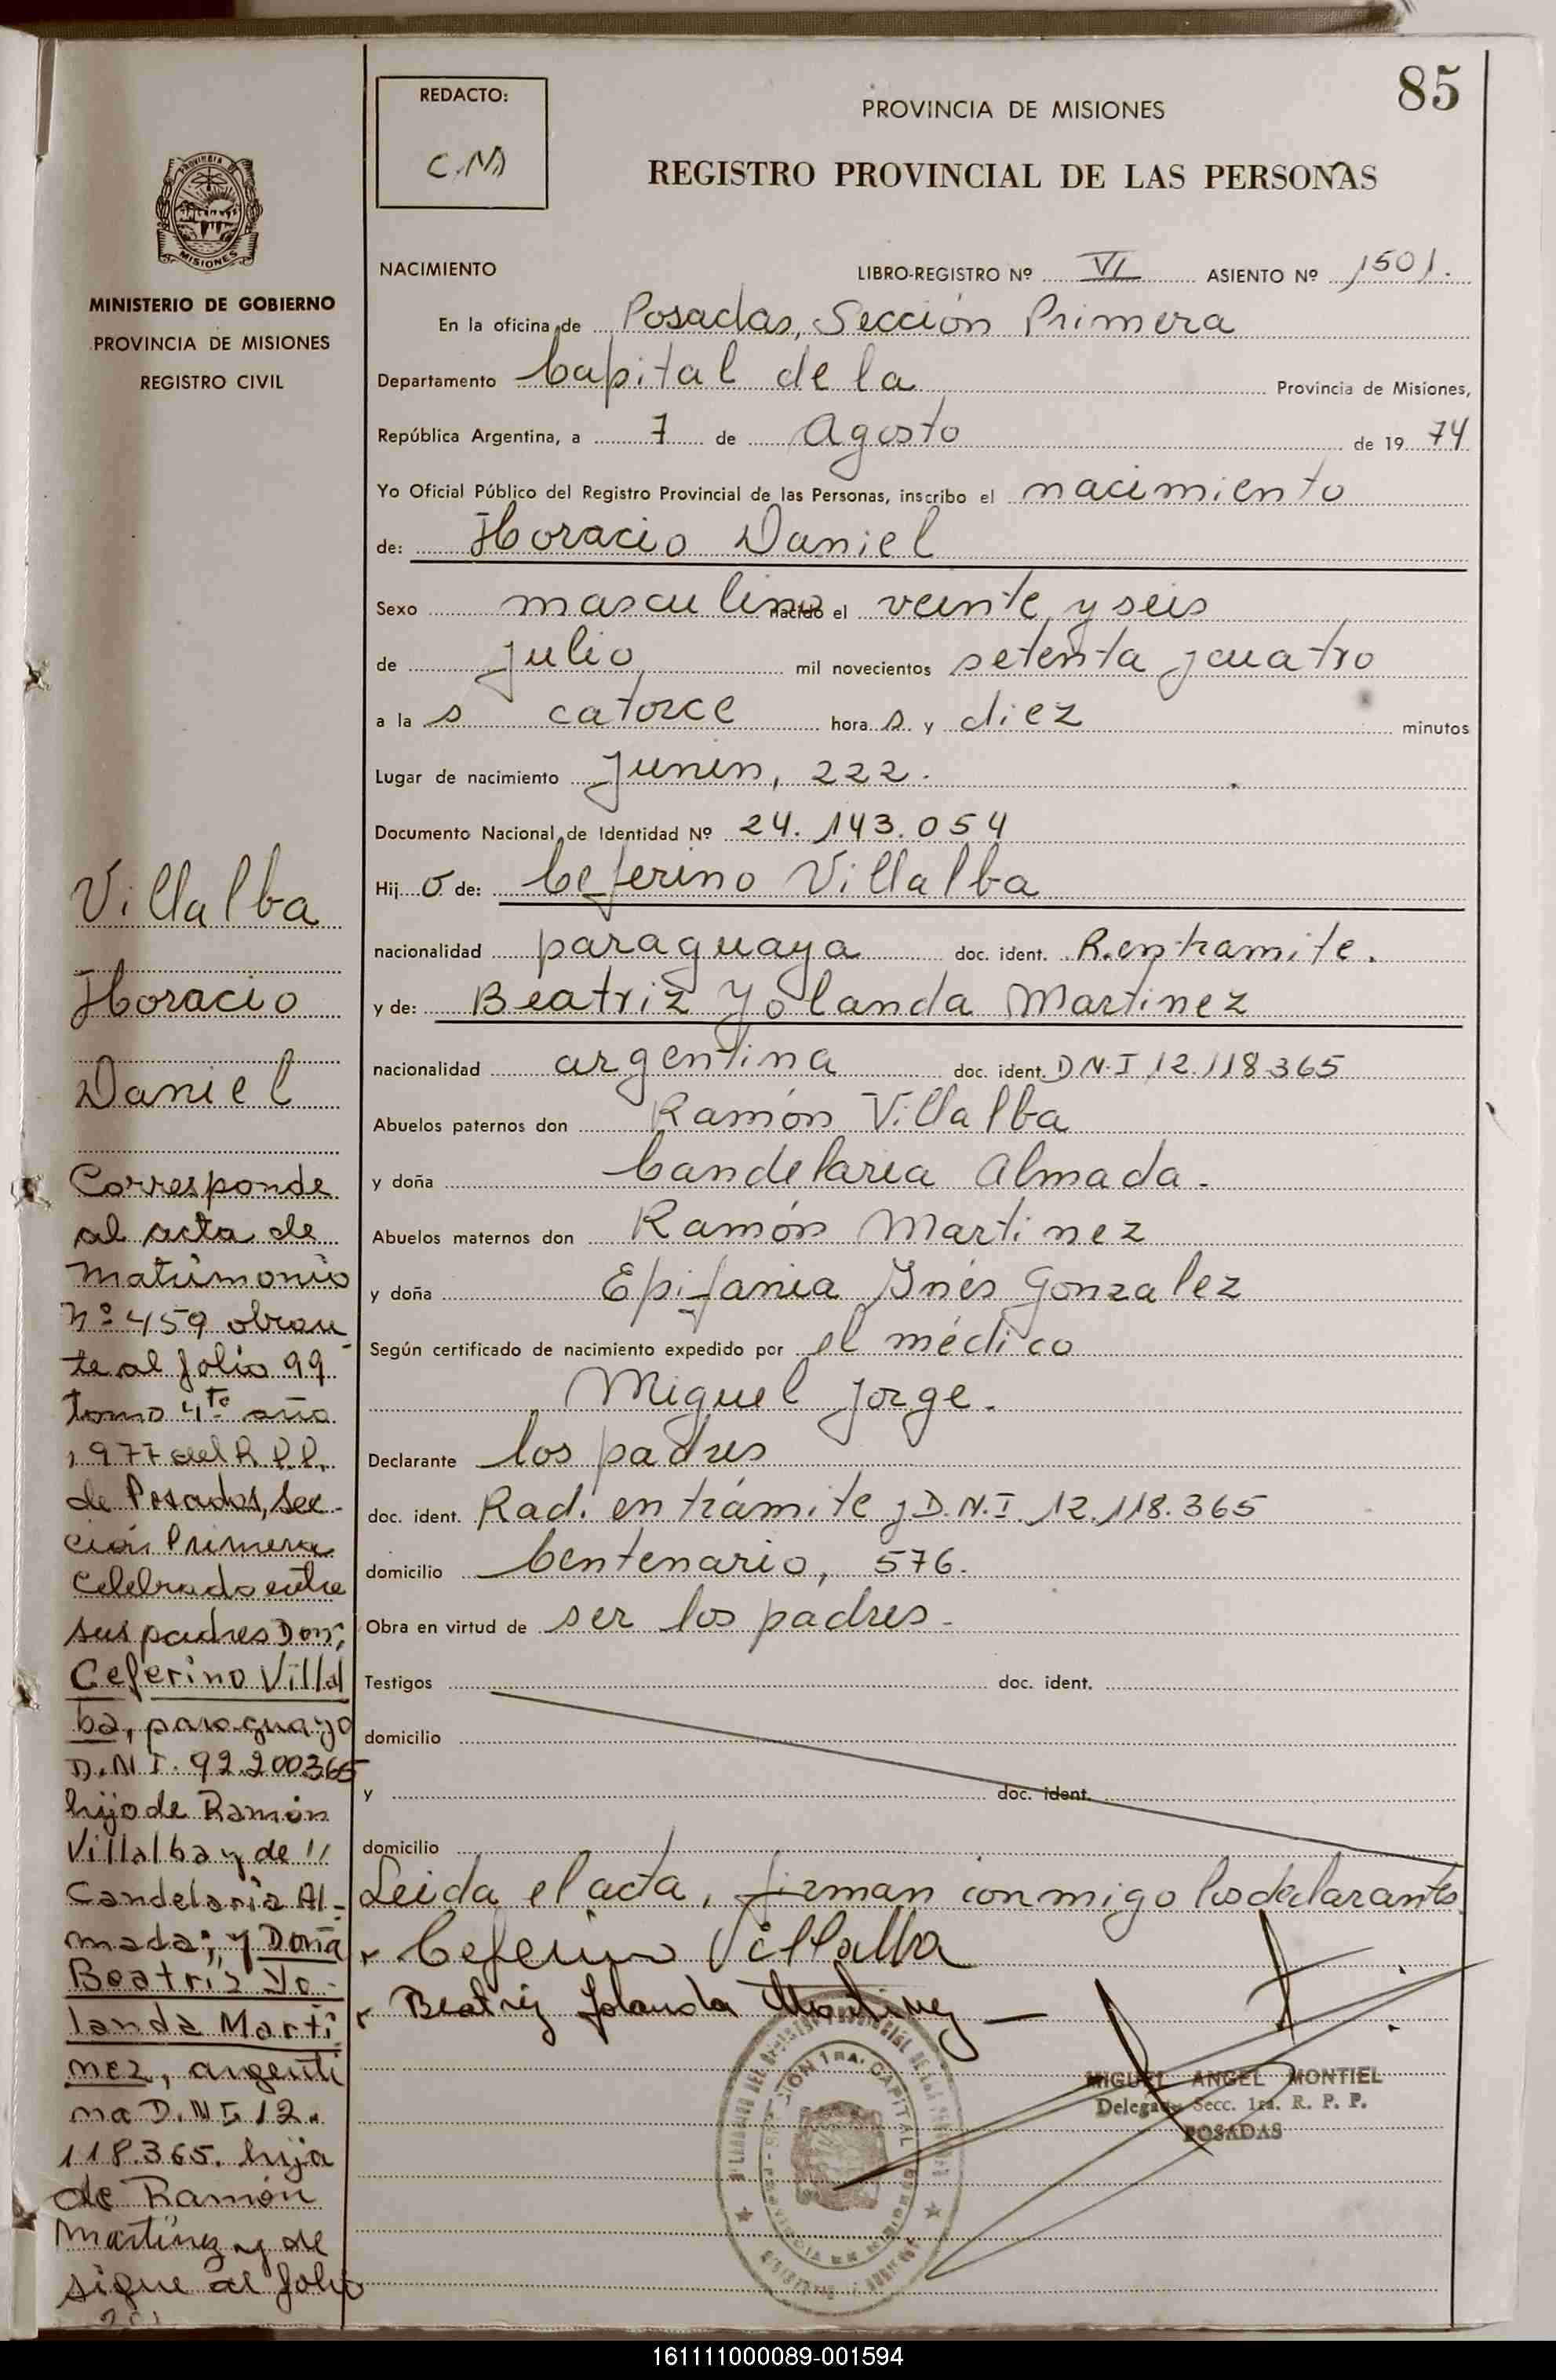 85
REDACTO:
C.N
PROVINCIA DE MISIONES
REGISTRO PROVINCIAL DE LAS PERSONAS
PROVINCIA DE
MISIONES
MINISTERIO DE GOBIERNO
PROVINCIA DE MISIONES
REGISTRO CIVIL
NACIMIENTO LIBRO-REGISTRO Nº VI ASIENTO Nº 1501.
En la oficina de Posadas, Sección Primera
Departamento Capital de la Provincia de Misiones,
República Argentina, a 7 de Agosto de 1974
Yo Oficial Público del Registro Provincial de las Personas, inscribo el nacimiento
de: Horacio Daniel
Sexo masculino nacido el veinte y seis
de julio mil novecientos setenta y cuatro
a la s catorce hora s y diez minutos
Lugar de nacimiento Junin, 222.
Documento Nacional de Identidad Nº 24.143.054
Hij o de: Ceferino Villalba
nacionalidad paraguaya doc. ident. R. en tramite.
y de: Beatriz Yolanda Martinez
nacionalidad argentina doc. ident. D.N.I 12.118.365
Abuelos paternos don Ramón Villalba
y doña Candelaria Almada.
Abuelos maternos don Ramón Martinez
y doña Epifania Inés Gonzalez
Según certificado de nacimiento expedido por el médico
Miguel Jorge.
Declarante los padres
doc. ident. Rad. en trámite y D.N.I. 12.118.365
domicilio Centenario, 576.
Obra en virtud de ser los padres.
Testigos doc. ident.
domicilio
y doc. ident.
domicilio
Leida el acta, firman conmigo los declarantes
Ceferino Villalba
Beatriz Yolanda Martinez
MIGUEL ANGEL MONTIEL
Delegado Secc. 1ra. R. P. P.
POSADAS
Villalba
Horacio
Daniel
Corresponde
al acta de
matrimonio
Nº 459 obran
te al folio 99
tomo 4to año
1977 del R.P.P.
de Posadas, Sec-
ción Primera
celebrado entre
sus padres Don;
Ceferino Villal
ba, paraguayo
D.N.I. 92.200365
hijo de Ramón
Villalba y de "
Candelaria Al-
mada; y Doña
Beatriz Yo-
landa Marti
nez, argenti
na D.N.I 12.
118.365. hija
de Ramón
Martínez y de
sigue al folio
161111000089-001594